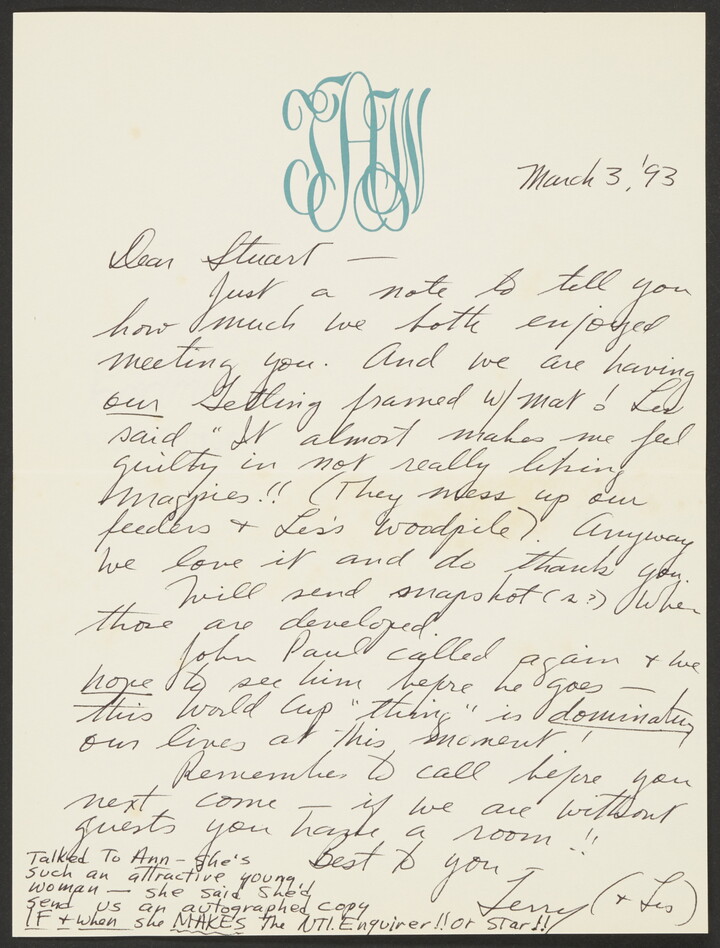 THW
March 3, '93
Dear Stuart —
Just a note to tell you
how much we both enjoyed
meeting you. And we are having
our Setting framed w/mat! Les
said "It almost makes me feel
guilty in not really liking
magpies!! (They mess up our
feeders + Les's woodpile). Anyway
we love it and do thank you.
Will send snapshot (s?) when
those are developed.
John Paul called again + we
hope to see him before he goes —
this World Cup "thing" is dominating
our lives at this moment!
Remember to call before you
next come — if we are without
guests you have a room!!
Best to you —
Terry (+ Les)
Talked To Ann — She's
such an attractive young
woman — she said she'd
send us an autographed copy
IF + when she MAKES the NTL. Enquirer!! or Star!!